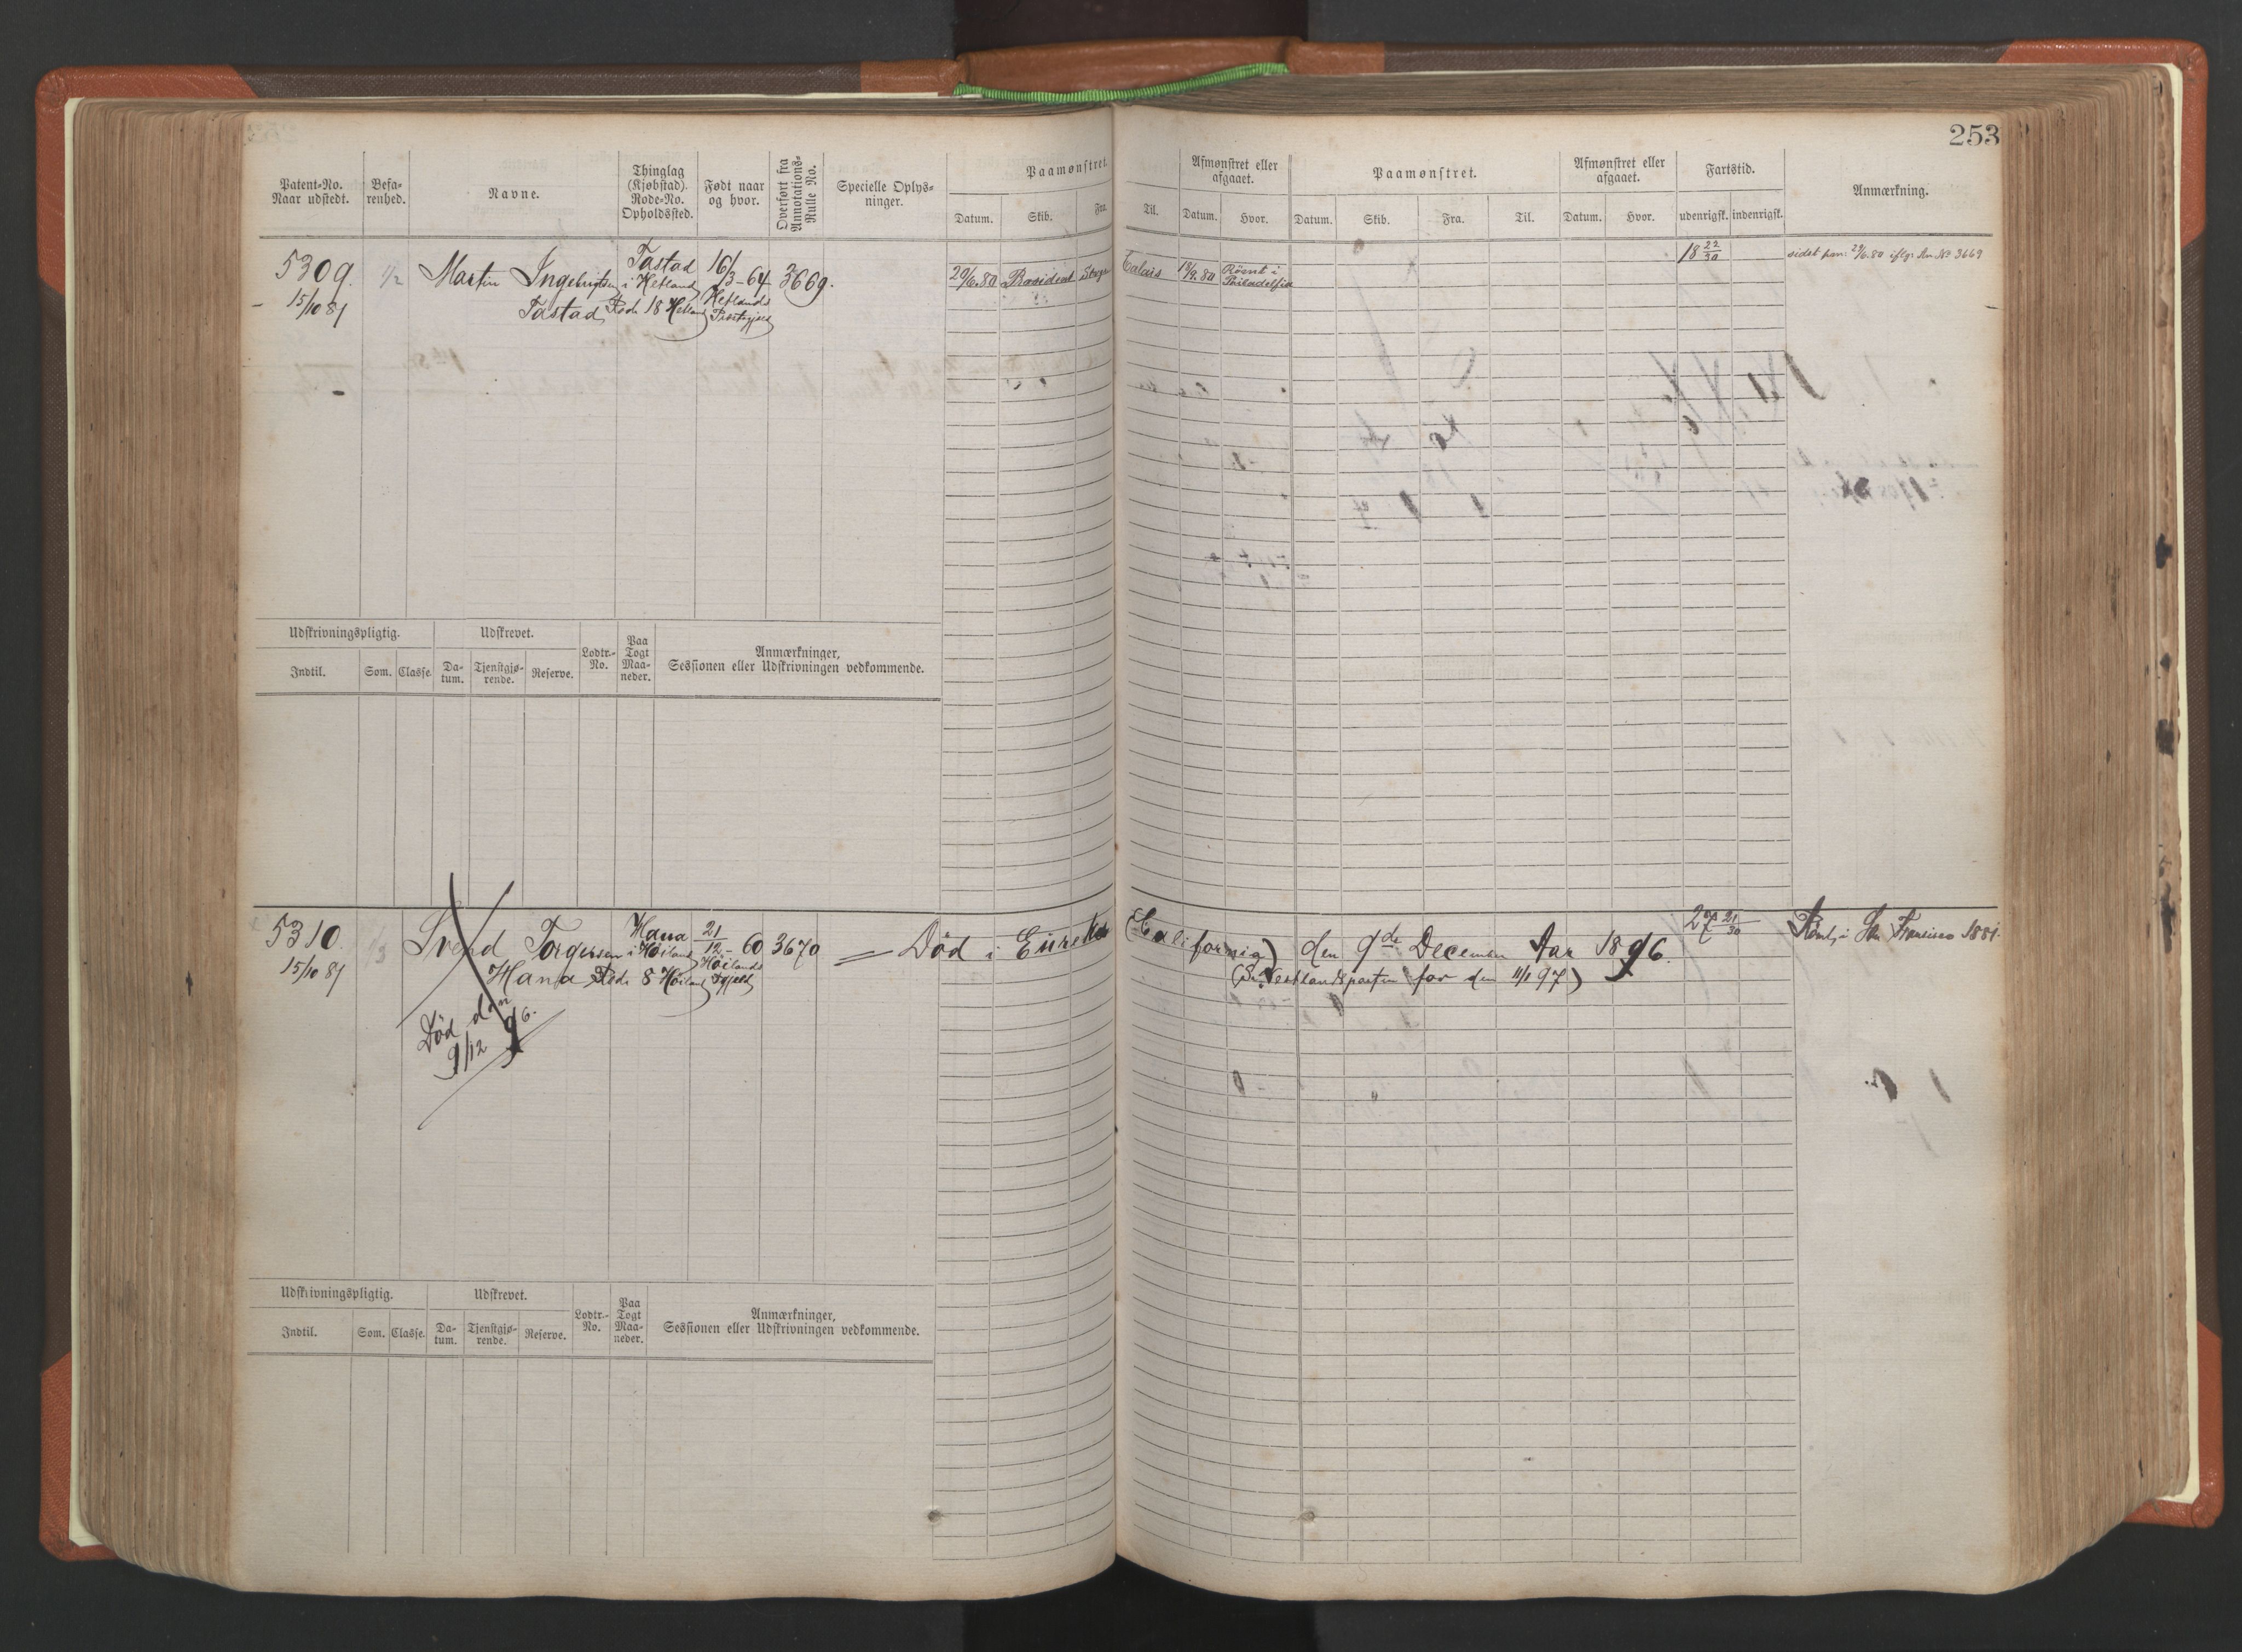 253
Patent-No. Naar udstedt.
Befa-renhed.
Navne.
Thinglag (Kjøbstad). Rode-No. Opholdssted.
Født naar og hvor.
Overført fra Annotations-Rulle No.
Specielle Oplys-ninger.
Paamønstret.
Afmønstret eller afgaaet.
Paamønstret.
Afmønstret eller afgaaet.
Fartstid.
Anmærkning.
Datum. Skib. Fra. Til. Datum. Hvor. Datum. Skib. Fra. Til. Datum. Hvor. udenrigsk. indenrigsk.
5309. 1/2 Martin Ingebrigtsen Tastad i Hetland 16/3-64 3669. 20/6.80 Præsident Calais 19/9.80 Rømt i Philadelfia 18 22/30 sidst paam: 29/6.80 iflg. An. No 3669
15/10 81 Tastad Rode 18 Hetland Hetlands Prstgjeld
Udskrivningspligtig. Udskrevet. Lodtr.-No. Paa Togt Maa-neder. Anmærkninger, Sessionen eller Udskrivningen vedkommende.
Indtil. Som. Classe. Da-tum. Tjenstgjø-rende. Reserve.
5310. 1/3 Svend Torgersen Hana i Høiland 21/12-60 3670 = Død i Eureka (California) den 9de December Aar 1896. 27 21/30 Rømt i San Francisco 1881.
15/10 81 Hana Rode 8 Høiland Høilands Pgjeld (Se Vestlandsposten for den 11/1 97)
Død den
9/12 96.
Udskrivningspligtig. Udskrevet. Lodtr.-No. Paa Togt Maa-neder. Anmærkninger, Sessionen eller Udskrivningen vedkommende.
Indtil. Som. Classe. Da-tum. Tjenstgjø-rende. Reserve.